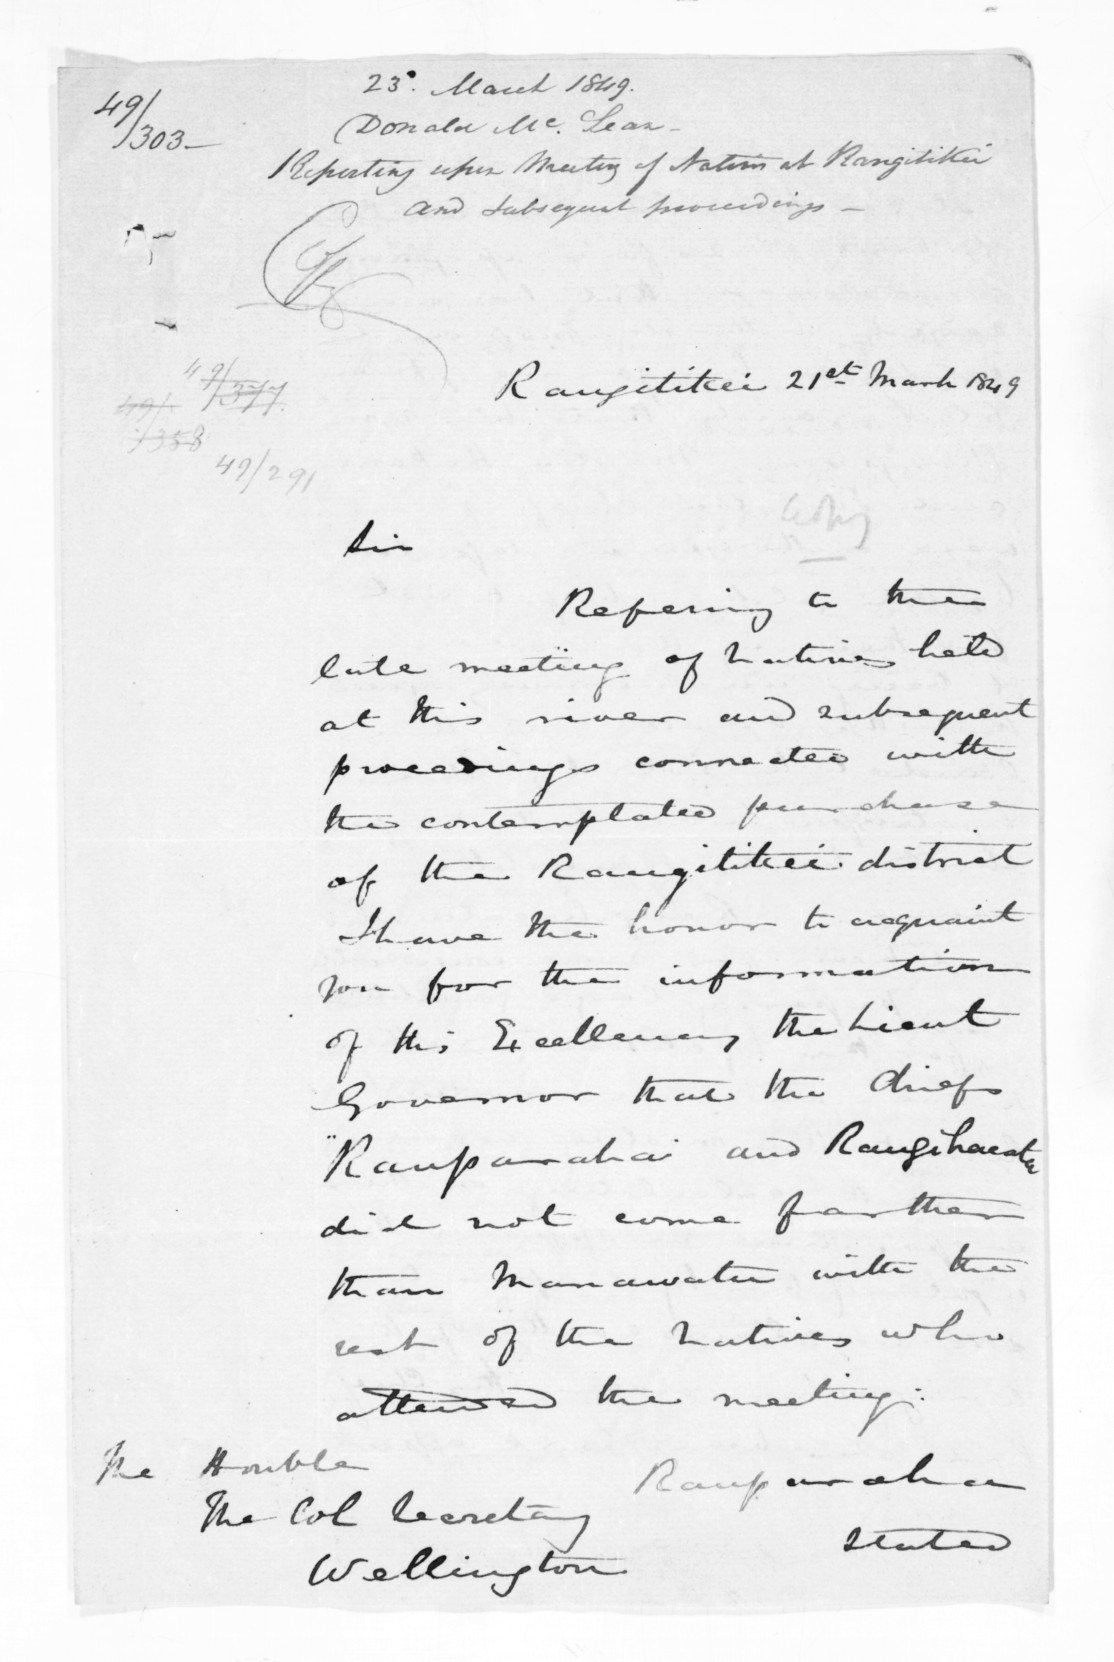 49/303
23d. March 1849.
Donald Mc. Lean
Reporting upon Meeting of Natives at Rangitikei
and subsequent proceedings
49/377
49/358
49/291
Rangitikei 21st March 1849
Copy
Sir
Refering to the
late meeting of Natives held
at this river and subsequent
proceedings connected with
the contemplated purchase
of the Rangitikei district
I have the honor to acquaint
you for the information
of His Excellency the Lieut
Governor that the chiefs
"Rauparaha and Rangihaeata
did not come farther
than Manawatu with the
rest of the Natives who
attended the meeting.
Rauparaha
stated
The Honble
The Col Secretary
Wellington